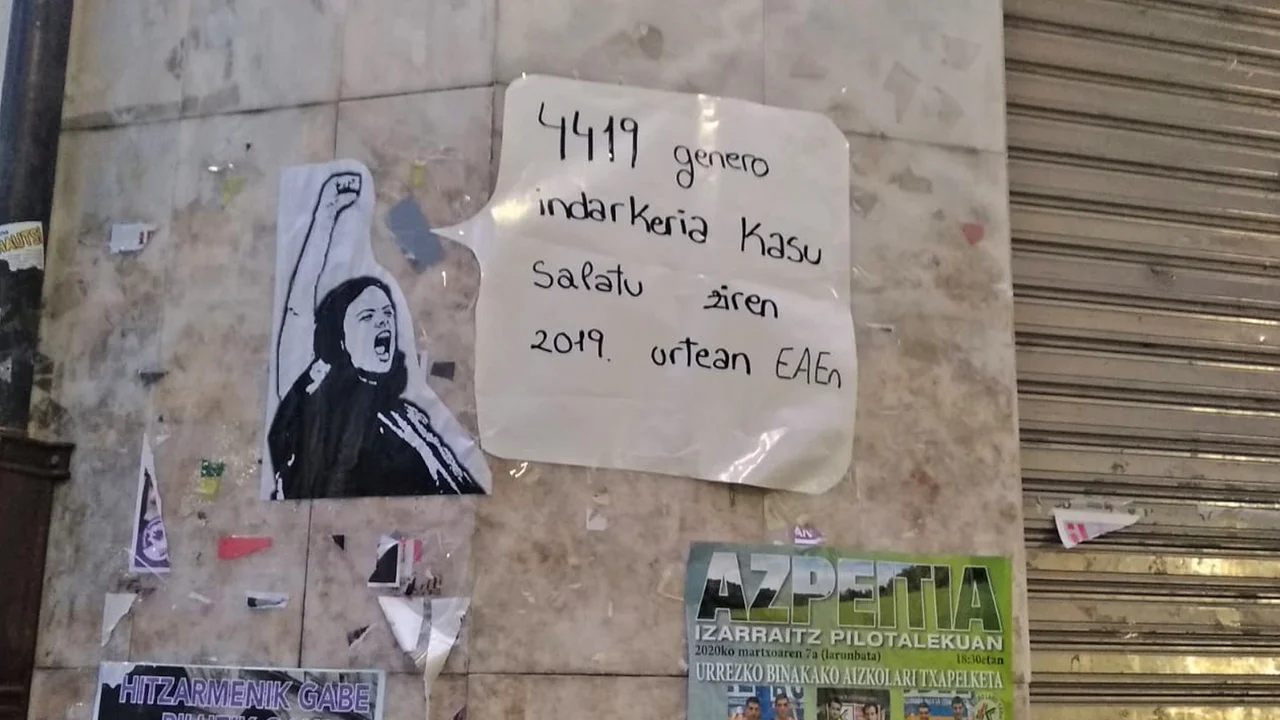 4419 genero
indarkeria kasu
salatu ziren
2019. urtean EAEn
AZPEITIA
IZARRAITZ PILOTALEKUAN
2020ko martxoaren 7a (larunbata)
18:30etan
URREZKO BINAKAKO AIZKOLARI TXAPELKETA
HITZARMENIK GABE